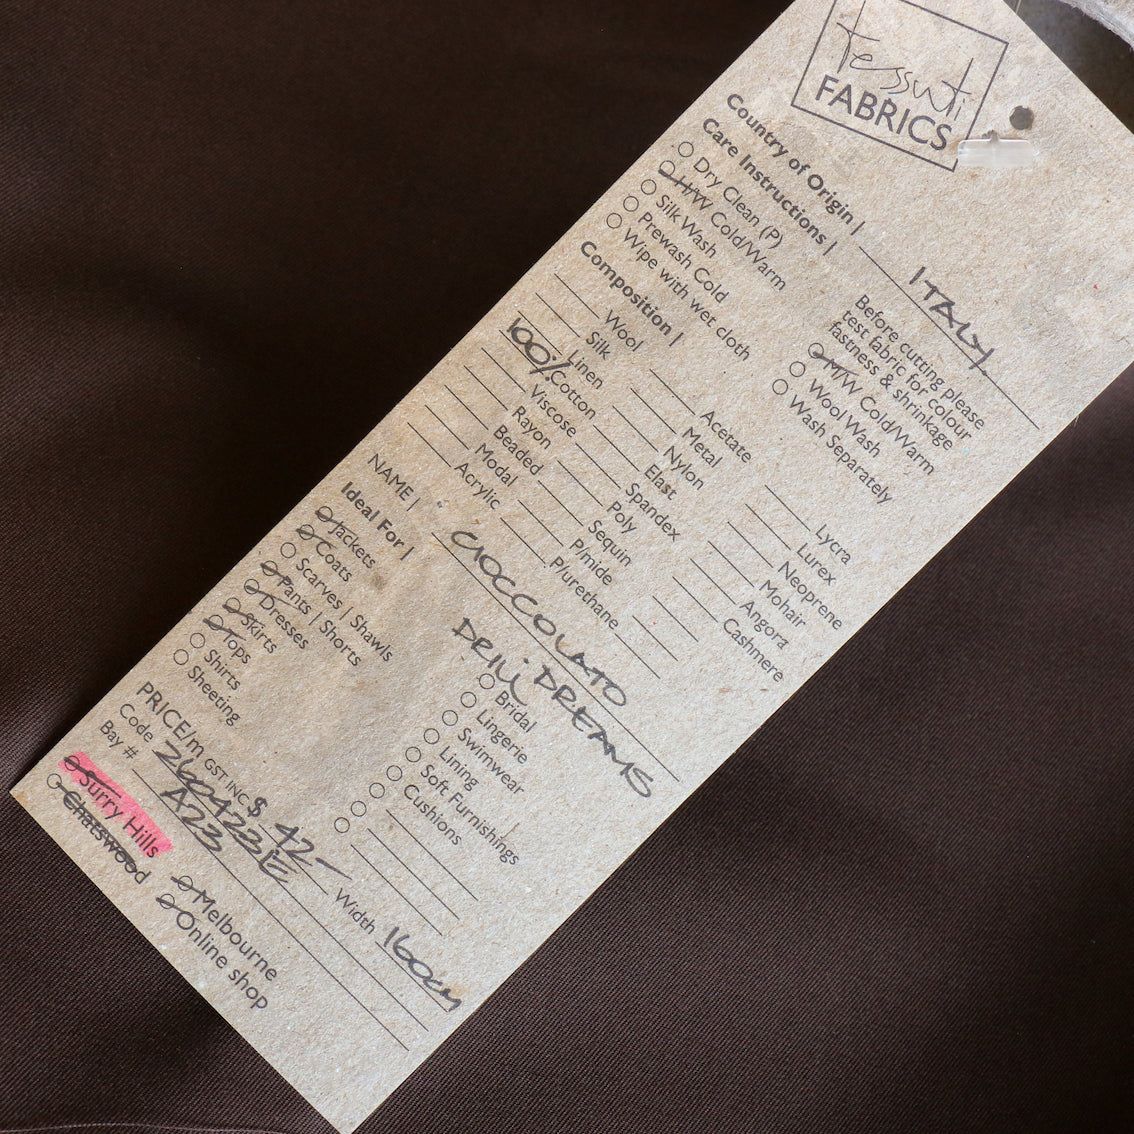 tessuti
FABRICS
Country of Origin | ITALY
Care Instructions |
Dry Clean (P)
H/W Cold/Warm
Silk Wash
Prewash Cold
Wipe with wet cloth
Before cutting please
test fabric for colour
fastness & shrinkage
M/W Cold/Warm
Wool Wash
Wash Separately
Composition |
Wool
Silk
Linen
100% Cotton
Viscose
Rayon
Beaded
Modal
Acrylic
Acetate
Metal
Nylon
Elast
Spandex
Poly
Sequin
P/mide
P/urethane
Lycra
Lurex
Neoprene
Mohair
Angora
Cashmere
NAME | : CIOCCOLATO
DRILL DREAMS
Ideal For |
Jackets
Coats
Scarves | Shawls
Pants | Shorts
Dresses
Skirts
Tops
Shirts
Sheeting
Bridal
Lingerie
Swimwear
Lining
Soft Furnishings
Cushions
PRICE/m GST INC $ 42-
Code 260423E Width 160cm
Bay # A23
Surry Hills
Chatswood
Melbourne
Online shop